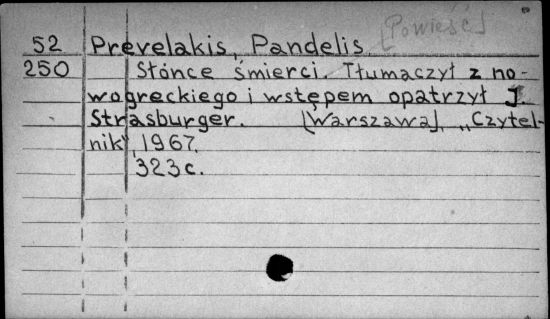 [Powieść]
52 Prevelakis, Pandelis
250 Słońce śmierci. Tłumaczył z no-
wogreckiego i wstępem opatrzył J.
Strasburger. [Warszawa], „Czytel-
nik" 1967.
323 c.